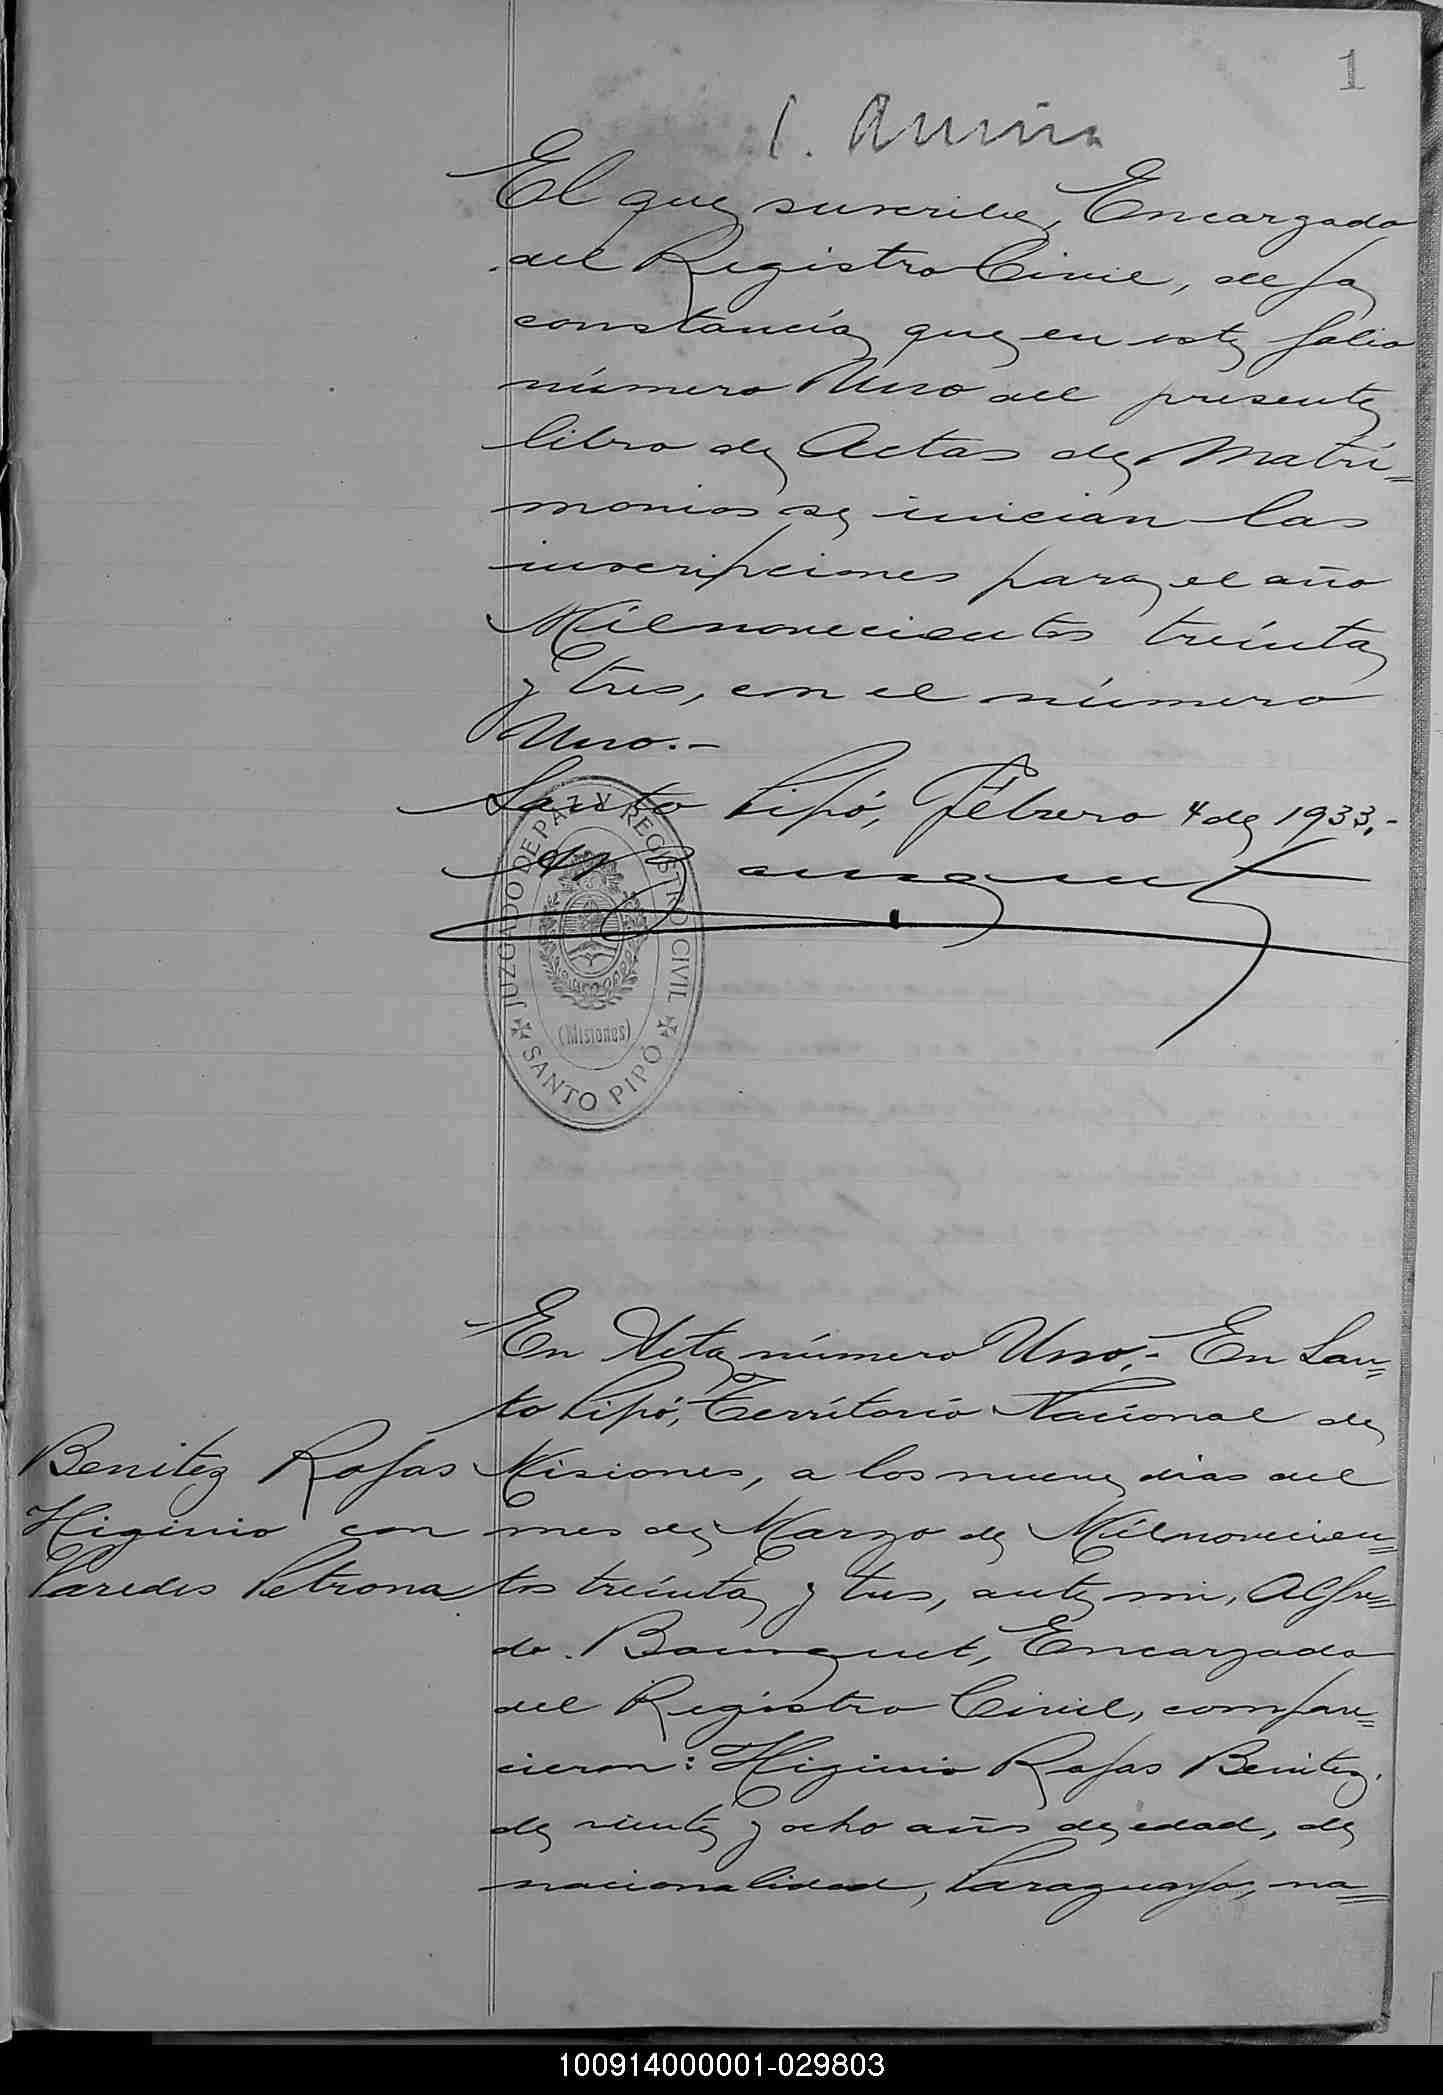 1
1.
El que suscribe, Encargado
del Registro Civil, deja
constancia que en este folio
número Uno del presente
libro de Actas de Matri=
monios se inician las
inscripciones para el año
Milnovecientos treinta
y tres, con el número
Uno.-
Santo Pipó, Febrero 4 de 1933.-
JUZGADO DE PAZ Y REGISTRO CIVIL
(Misiones)
SANTO PIPÓ
En Acta número Uno.- En San=
to Pipó, Territorio Nacional de
Benitez Rojas
Higinio con
Paredes Petrona
Misiones, a los nueve dias del
mes de Marzo de Milnovecien=
tos treinta y tres, ante mi, Alfre=
do Encargado
del Registro Civil, compare=
cieron: Higinio Rojas Benitez,
de veinte y ocho años de edad, de
nacionalidad, Paraguayo, na=
100914000001-029803